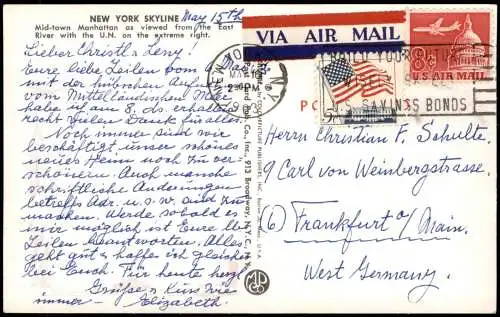 NEW YORK SKYLINE
May 15th
Mid-town Manhattan as viewed from the East
River with the U.N. on the extreme right.
Lieber Christl u. Leny!
Eure liebe Zeilen vom
mit der hübschen Aufnahme
vom Mittelländischen Meer
habe am 8. da erhalten
recht vielen Dank für alles.
Noch immer sind wir
beschäftigt unser schönes
neues Heim noch zu ver-
schönern. Auch manche
schriftliche Änderungen
betreffs Adr. u.s.w. sind zu
machen. Werde sobald es
mir möglich ist Eure lb.
Zeilen beantworten. Alles
geht gut u. hoffe ich gleiches
bei Euch. Für heute herzl.
Grüße u. Kuss wie
immer - Elizabeth.
VIA AIR MAIL
8¢
U.S. AIR MAIL
SAVINGS BONDS
5¢
PM
PO
Herrn Christian F. Schnur
9 Carl von Weinbergstrasse.
(6) Frankfurt a/Main.
West Germany.
913 Broadway, N.Y.C.